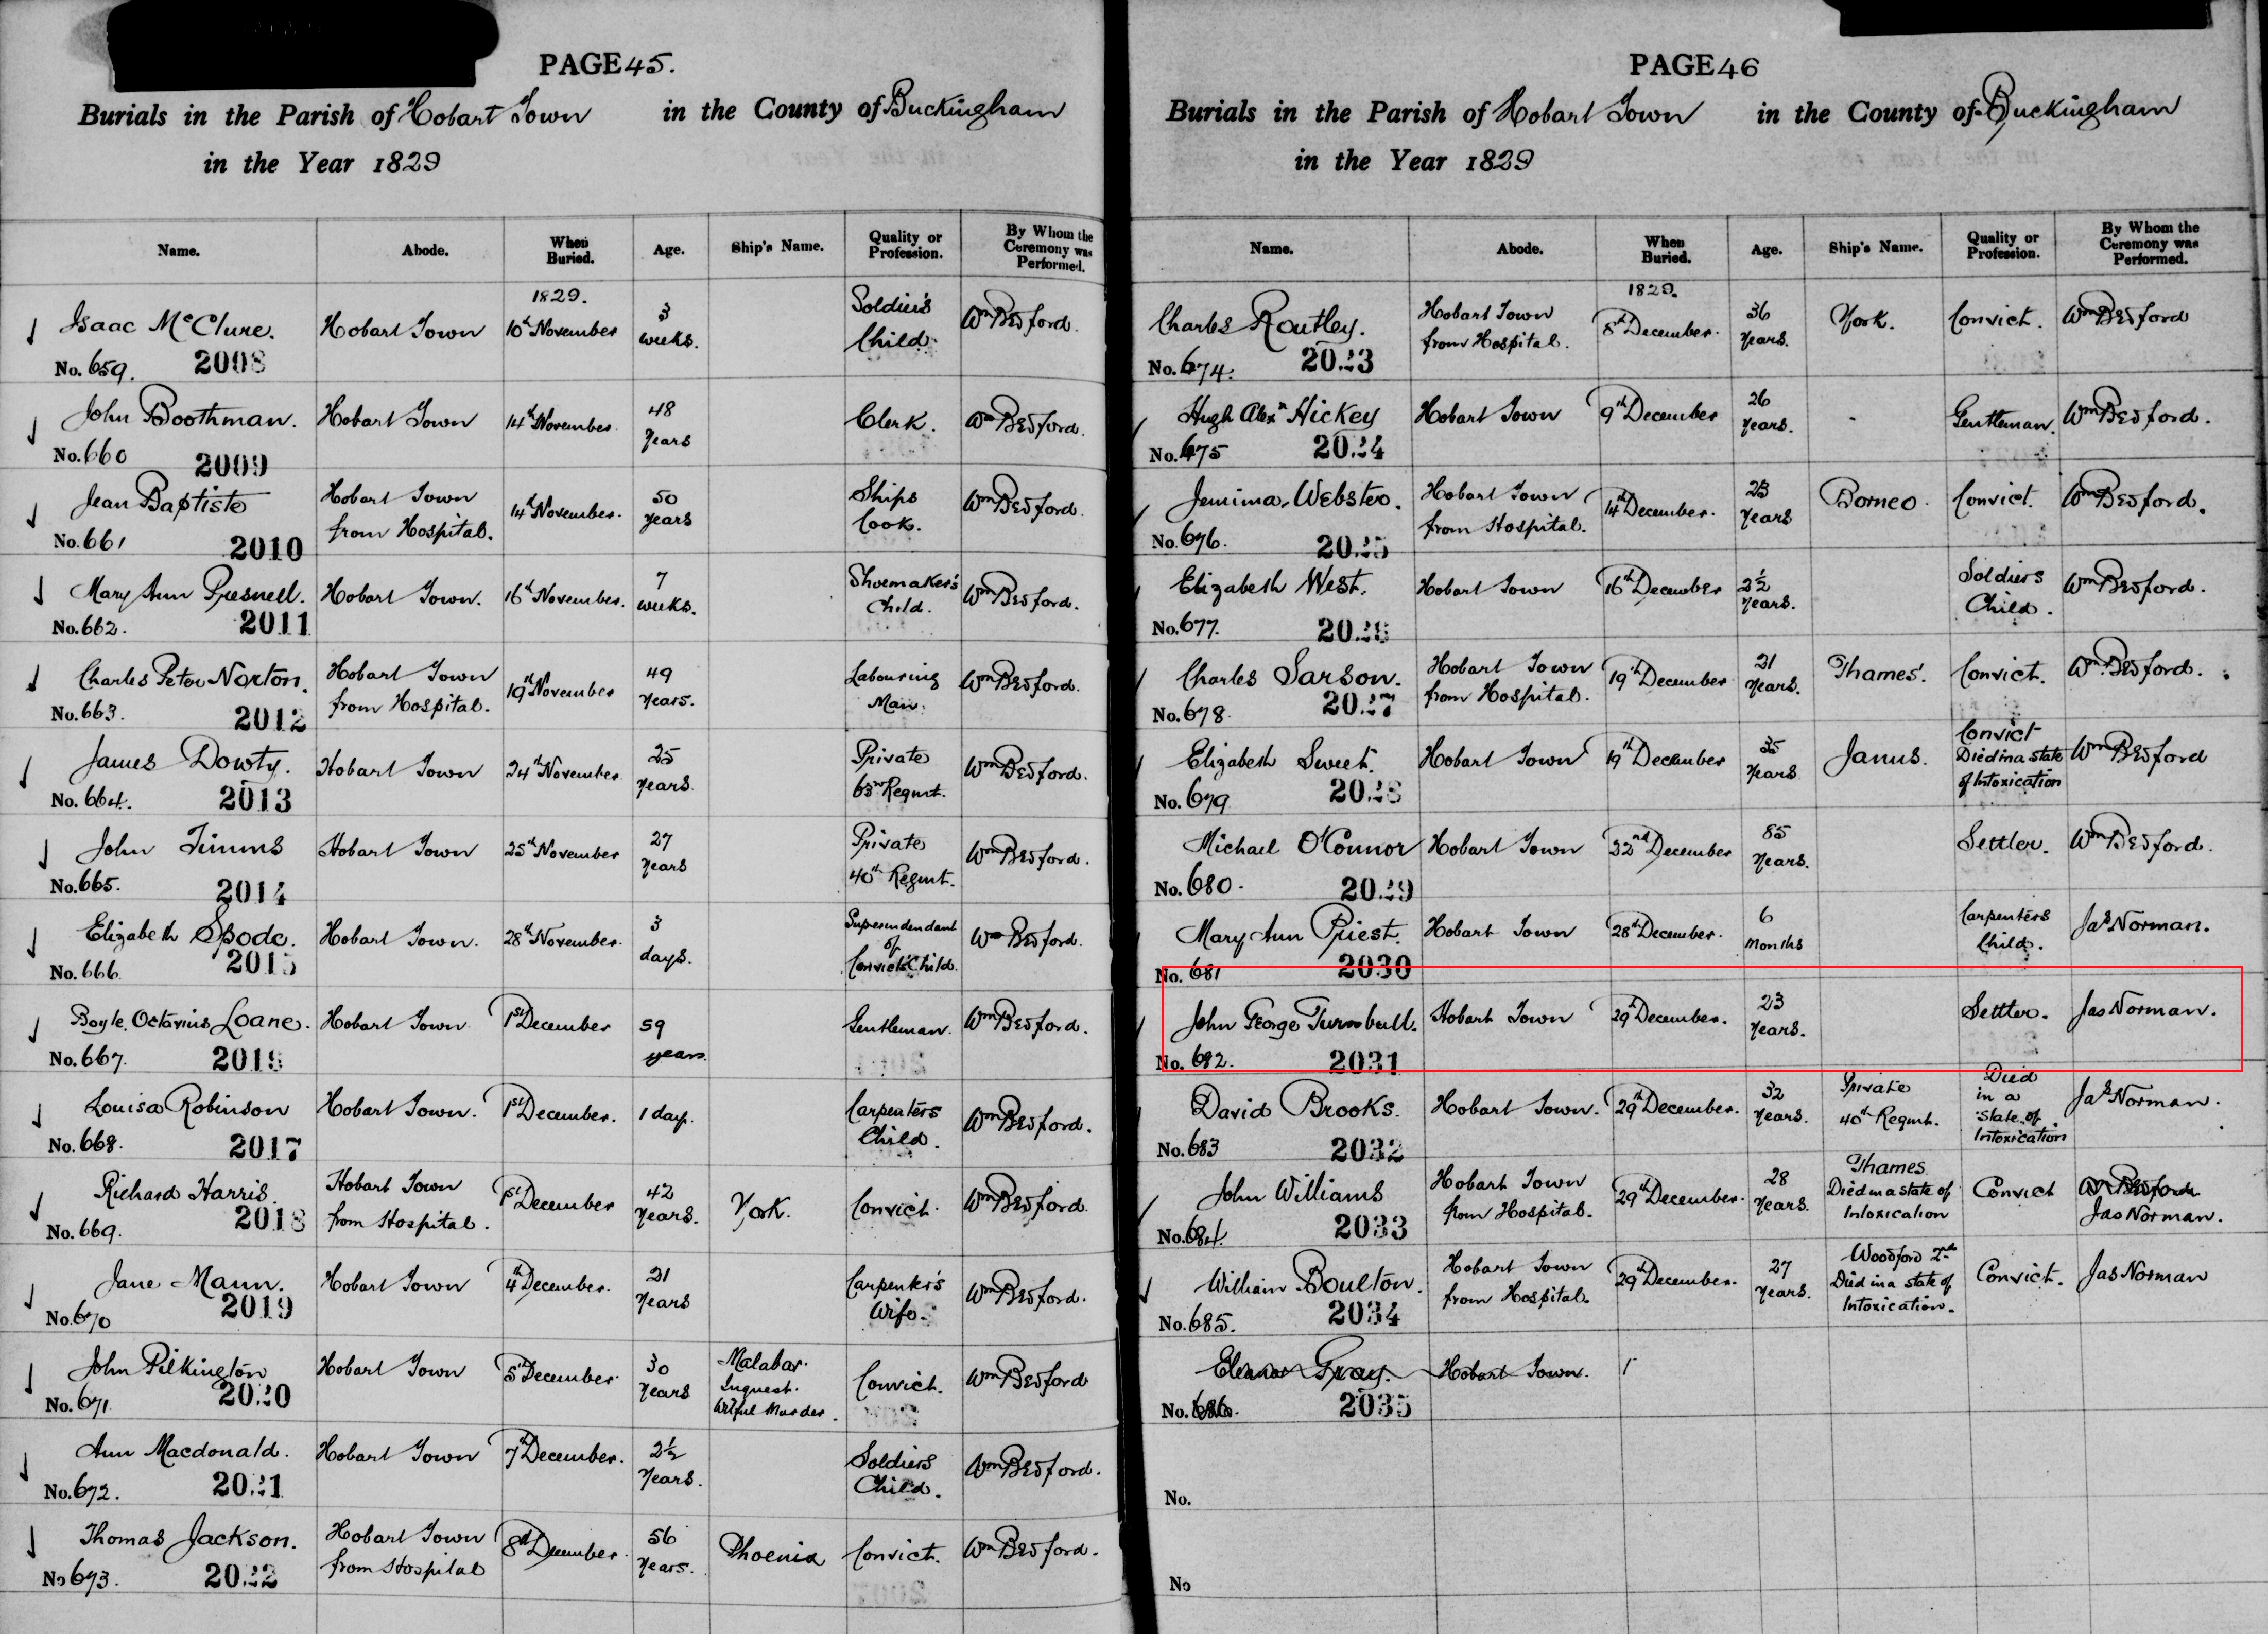 PAGE 45.
Burials in the Parish of Hobart Town in the County of Buckingham
in the Year 1829
Name. Abode. When Buried. Age. Ship's Name. Quality or Profession. By Whom the Ceremony was Performed.
1829.
Isaac McClure. Hobart Town 10th November 3 weeks. Soldier's Child. Wm Bedford.
No. 659. 2008
John Boothman. Hobart Town 14th November 48 Years Clerk. Wm Bedford.
No. 660 2009
Jean Baptiste Hobart Town from Hospital. 14th November. 50 years Ships Cook. Wm Bedford.
No. 661 2010
Mary Ann Presnell. Hobart Town. 16th November. 7 weeks. Shoemaker's Child. Wm Bedford.
No. 662. 2011
Charles Peter Norton. Hobart Town from Hospital. 19th November 49 Years. Labouring Man. Wm Bedford.
No. 663. 2012
James Dowty. Hobart Town 24th November 25 Years. Private 63rd Regmt. Wm Bedford.
No. 664. 2013
John Timms Hobart Town 25th November 27 Years Private 40th Regmt. Wm Bedford.
No. 665. 2014
Elizabeth Spode. Hobart Town. 28th November. 3 days. Superindendant of Convicts Child. Wm Bedford.
No. 666. 2015
Boyle Octavius Loane. Hobart Town 1st December 59 years. Gentleman. Wm Bedford.
No. 667. 2016
Louisa Robinson Hobart Town. 1st December. 1 day. Carpenters Child. Wm Bedford.
No. 668. 2017
Richard Harris. Hobart Town from Hospital. 1st December 42 Years. York. Convict. Wm Bedford.
No. 669. 2018
Jane Mann. Hobart Town 4th December. 21 Years Carpenter's Wife. Wm Bedford.
No. 670 2019
John Pilkington Hobart Town 5th December. 30 Years Malabar. Inquest. Wilful Murder. Convict. Wm Bedford
No. 671. 2020
Ann Macdonald. Hobart Town 7th December. 2½ Years. Soldiers Child. Wm Bedford.
No. 672. 2021
Thomas Jackson. Hobart Town from Hospital 8th December. 56 Years. Phoenix Convict. Wm Bedford.
No 673. 2022
PAGE 46
Burials in the Parish of Hobart Town in the County of Buckingham
in the Year 1829
Name. Abode. When Buried. Age. Ship's Name. Quality or Profession. By Whom the Ceremony was Performed.
1829.
Charles Routley. Hobart Town from Hospital. 8th December. 36 Years. York. Convict. Wm Bedford
No. 674. 2023
Hugh Alexr Hickey Hobart Town 9th December 26 Years. - Gentleman. Wm Bedford.
No. 675 2024
Jemima Webster. Hobart Town from Hospital. 14th December. 23 Years Borneo. Convict. Wm Bedford.
No. 676. 2025
Elizabeth West. Hobart Town 16th December 2½ Years. Soldiers Child. Wm Bedford.
No. 677. 2026
Charles Sarson. Hobart Town from Hospital. 19th December 21 Years. Thames. Convict. Wm Bedford.
No. 678. 2027
Elizabeth Sweet. Hobart Town 19th December 35 Years. Janus. Convict Died in a state of Intoxication Wm Bedford
No. 679 2028
Michael O'Connor Hobart Town 22nd December 85 Years. Settler. Wm Bedford.
No. 680. 2029
Mary Ann Priest. Hobart Town 28th December. 6 Months Carpenters Child. Jas Norman.
No. 681 2030
John George Turnbull. Hobart Town 29th December. 23 Years. Settler. Jas Norman.
No. 682. 2031
David Brooks. Hobart Town. 29th December. 32 Years. Private 40th Regmt. Died in a State of Intoxication Jas Norman.
No. 683 2032
John Williams Hobart Town from Hospital. 29th December. 28 Years. Thames Died in a state of Intoxication Convict Wm Bedford Jas Norman.
No. 684. 2033
William Boulton. Hobart Town from Hospital. 29th December. 27 Years. Woodford 2nd Died in a state of Intoxication. Convict. Jas Norman
No. 685. 2034
Eleanor Gray. Hobart Town. 1
No. 686. 2035
No.
No